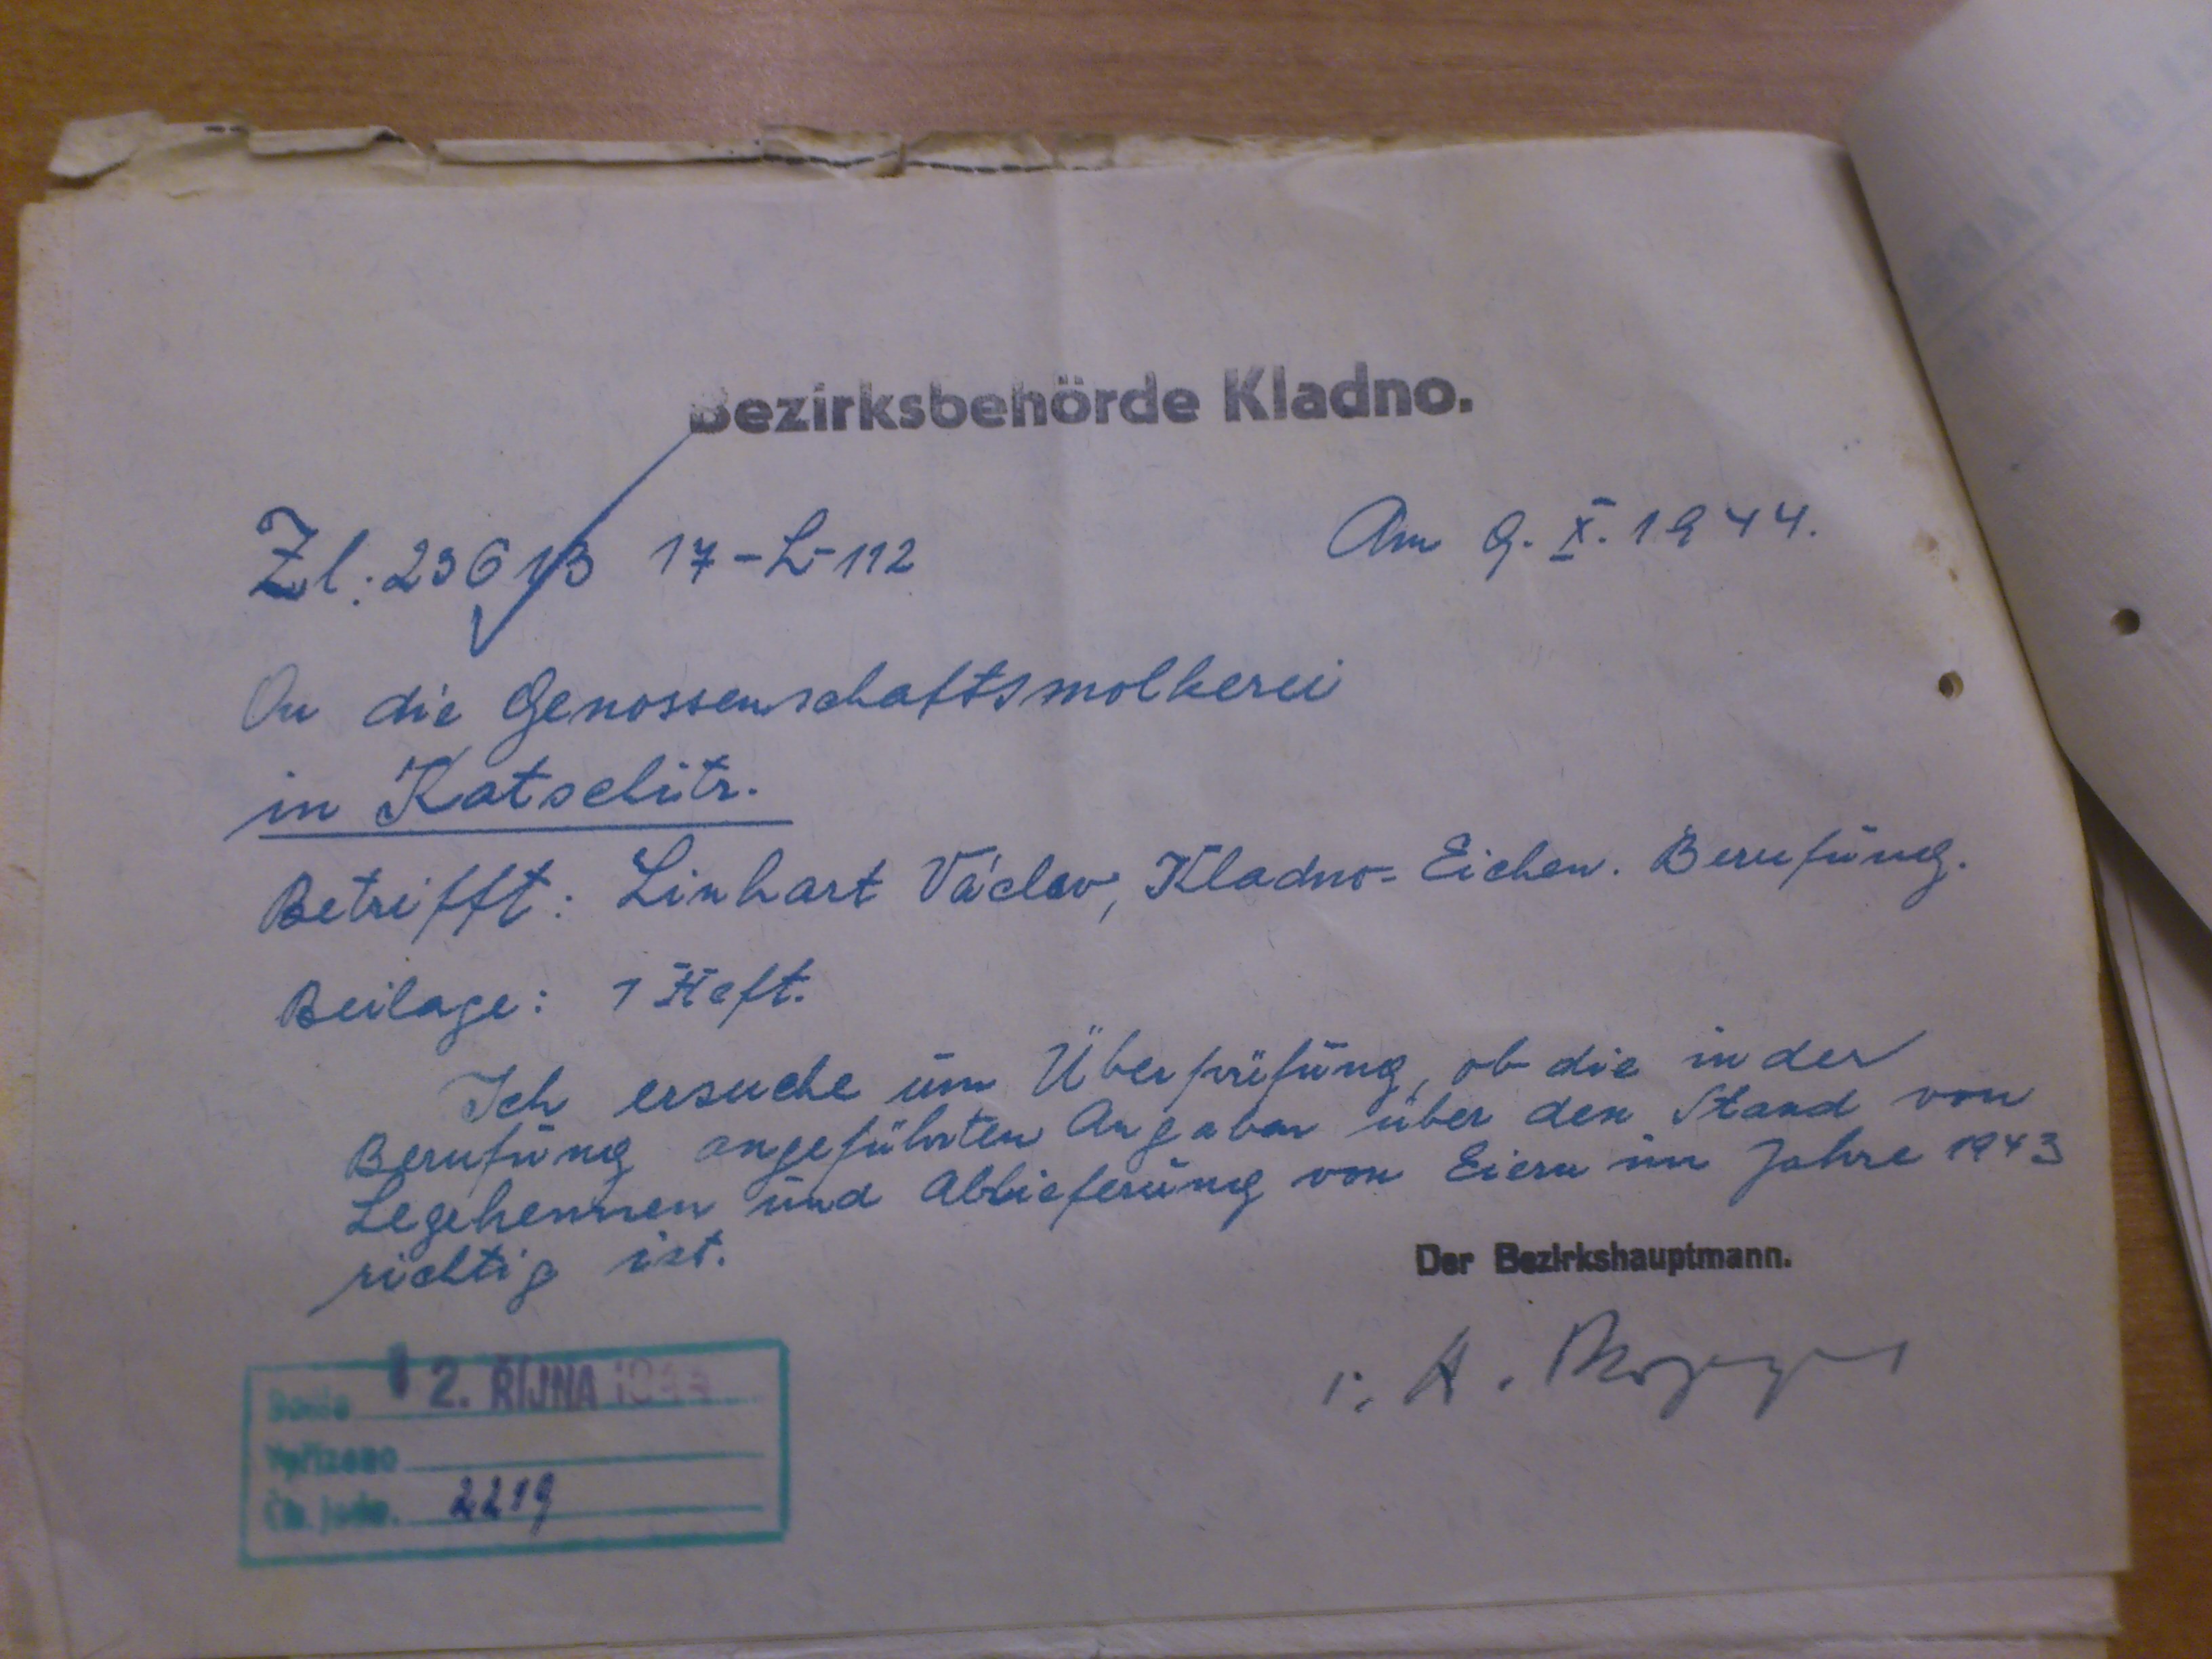 Bezirksbehörde Kladno.
Zl: 23613 17-L-112
Am 9. X. 1944.
An die Genossenschaftsmolkerei
in Katschitz.
Betrifft: Linhart Václav, Kladno-Eichen. Berufung.
Beilage: 1 Heft.
Ich ersuche um Überprüfung, ob die in der
Berufung angeführten Angaben über den Stand von
Legehennen und Ablieferung von Eiern im Jahre 1943
richtig ist.
Der Bezirkshauptmann.
i. A.
Došlo 12. ŘÍJNA 1944
Vyřízeno
Čís. jedn. 2219